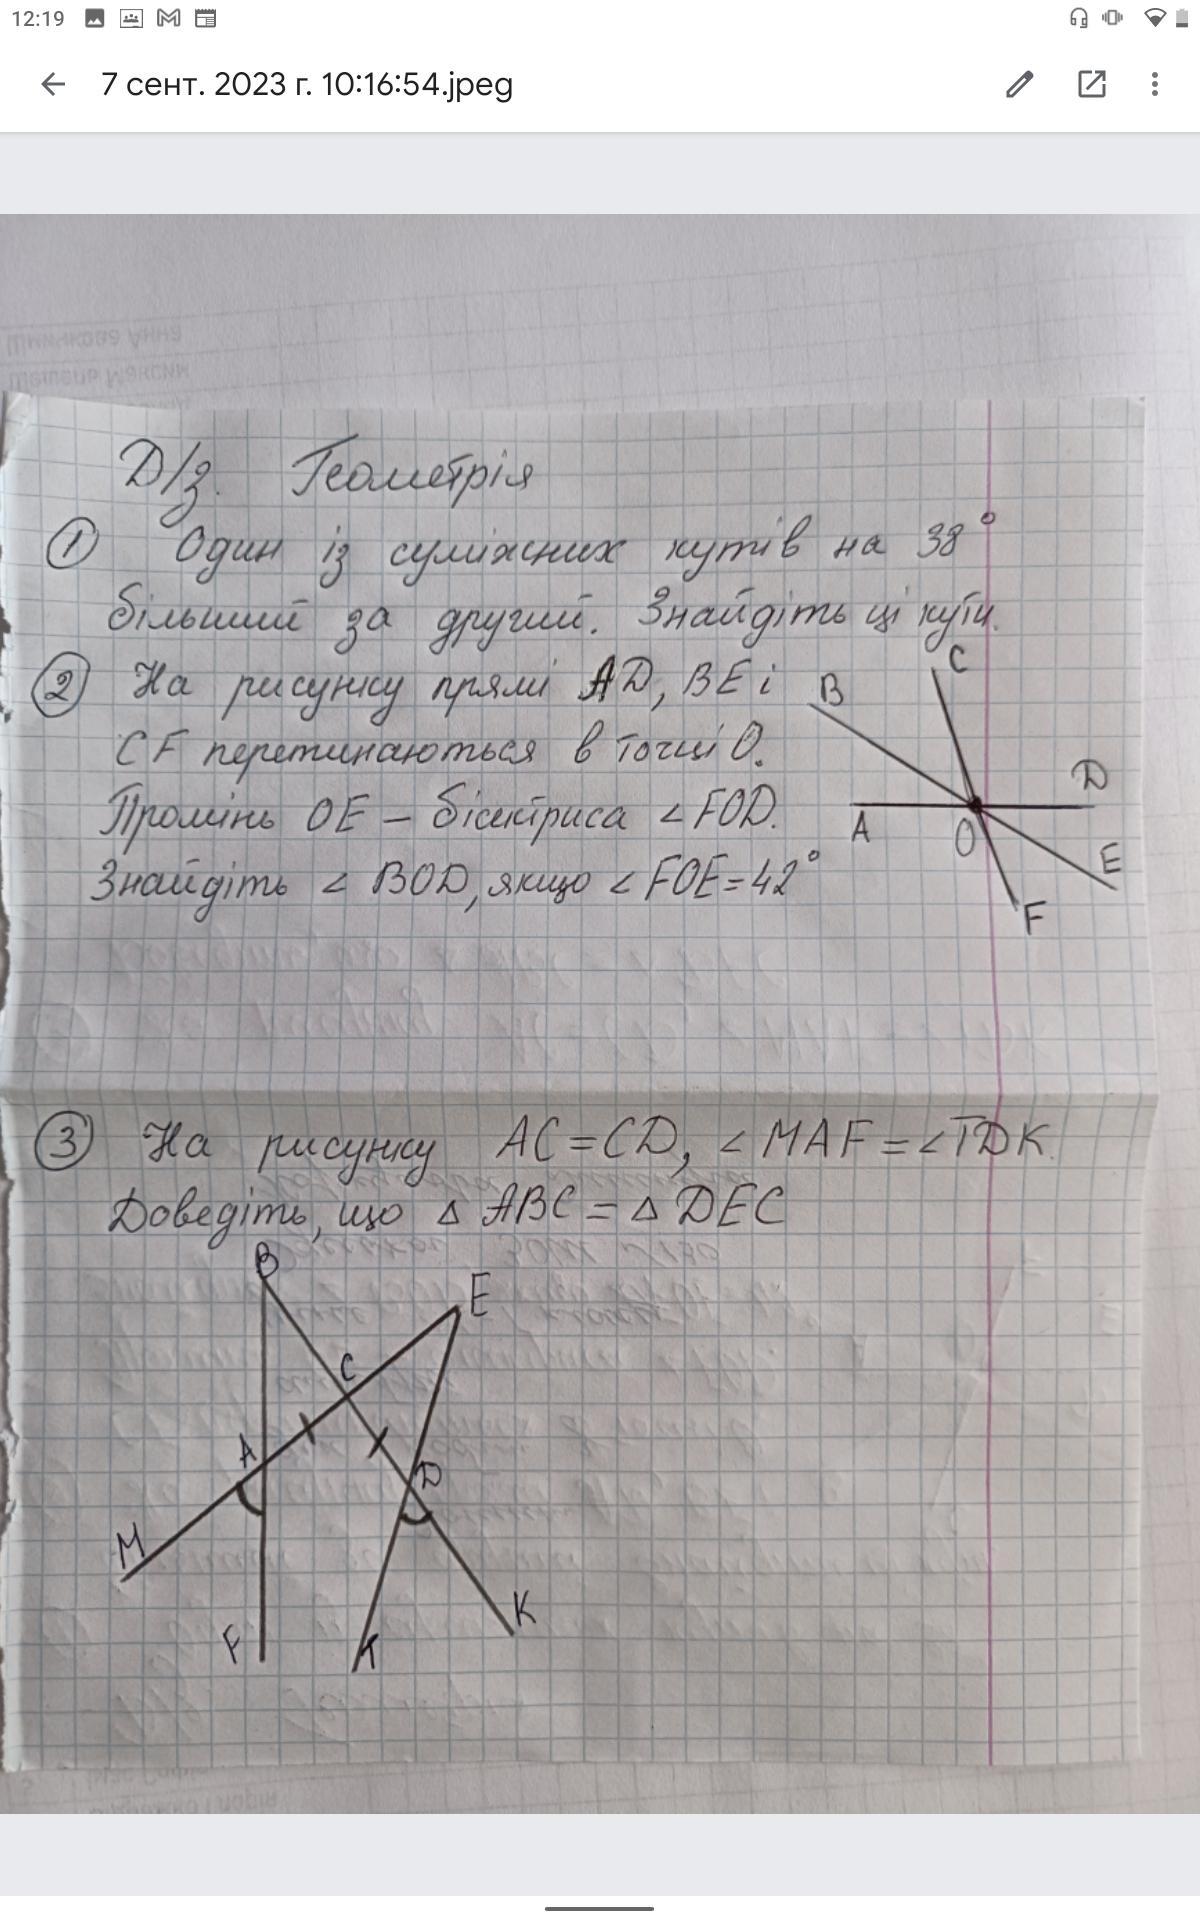 12:19
7 сент. 2023 г. 10:16:54.jpeg
Шинчкова Анна
Шешеня Максим
Д/з. Геометрія
① Один із суміжних кутів на 38°
більший за другий. Знайдіть ці кути.
② На рисунку прямі AD, BE і
CF перетинаються в точці O.
Промінь OE – бісектриса ∠FOD.
Знайдіть ∠ BOD, якщо ∠ FOE = 42°
B
C
D
A
O
E
F
③ На рисунку AC = CD, ∠ MAF = ∠TDK.
Доведіть, що Δ ABC = Δ DEC
B
E
C
A
D
M
K
F
T